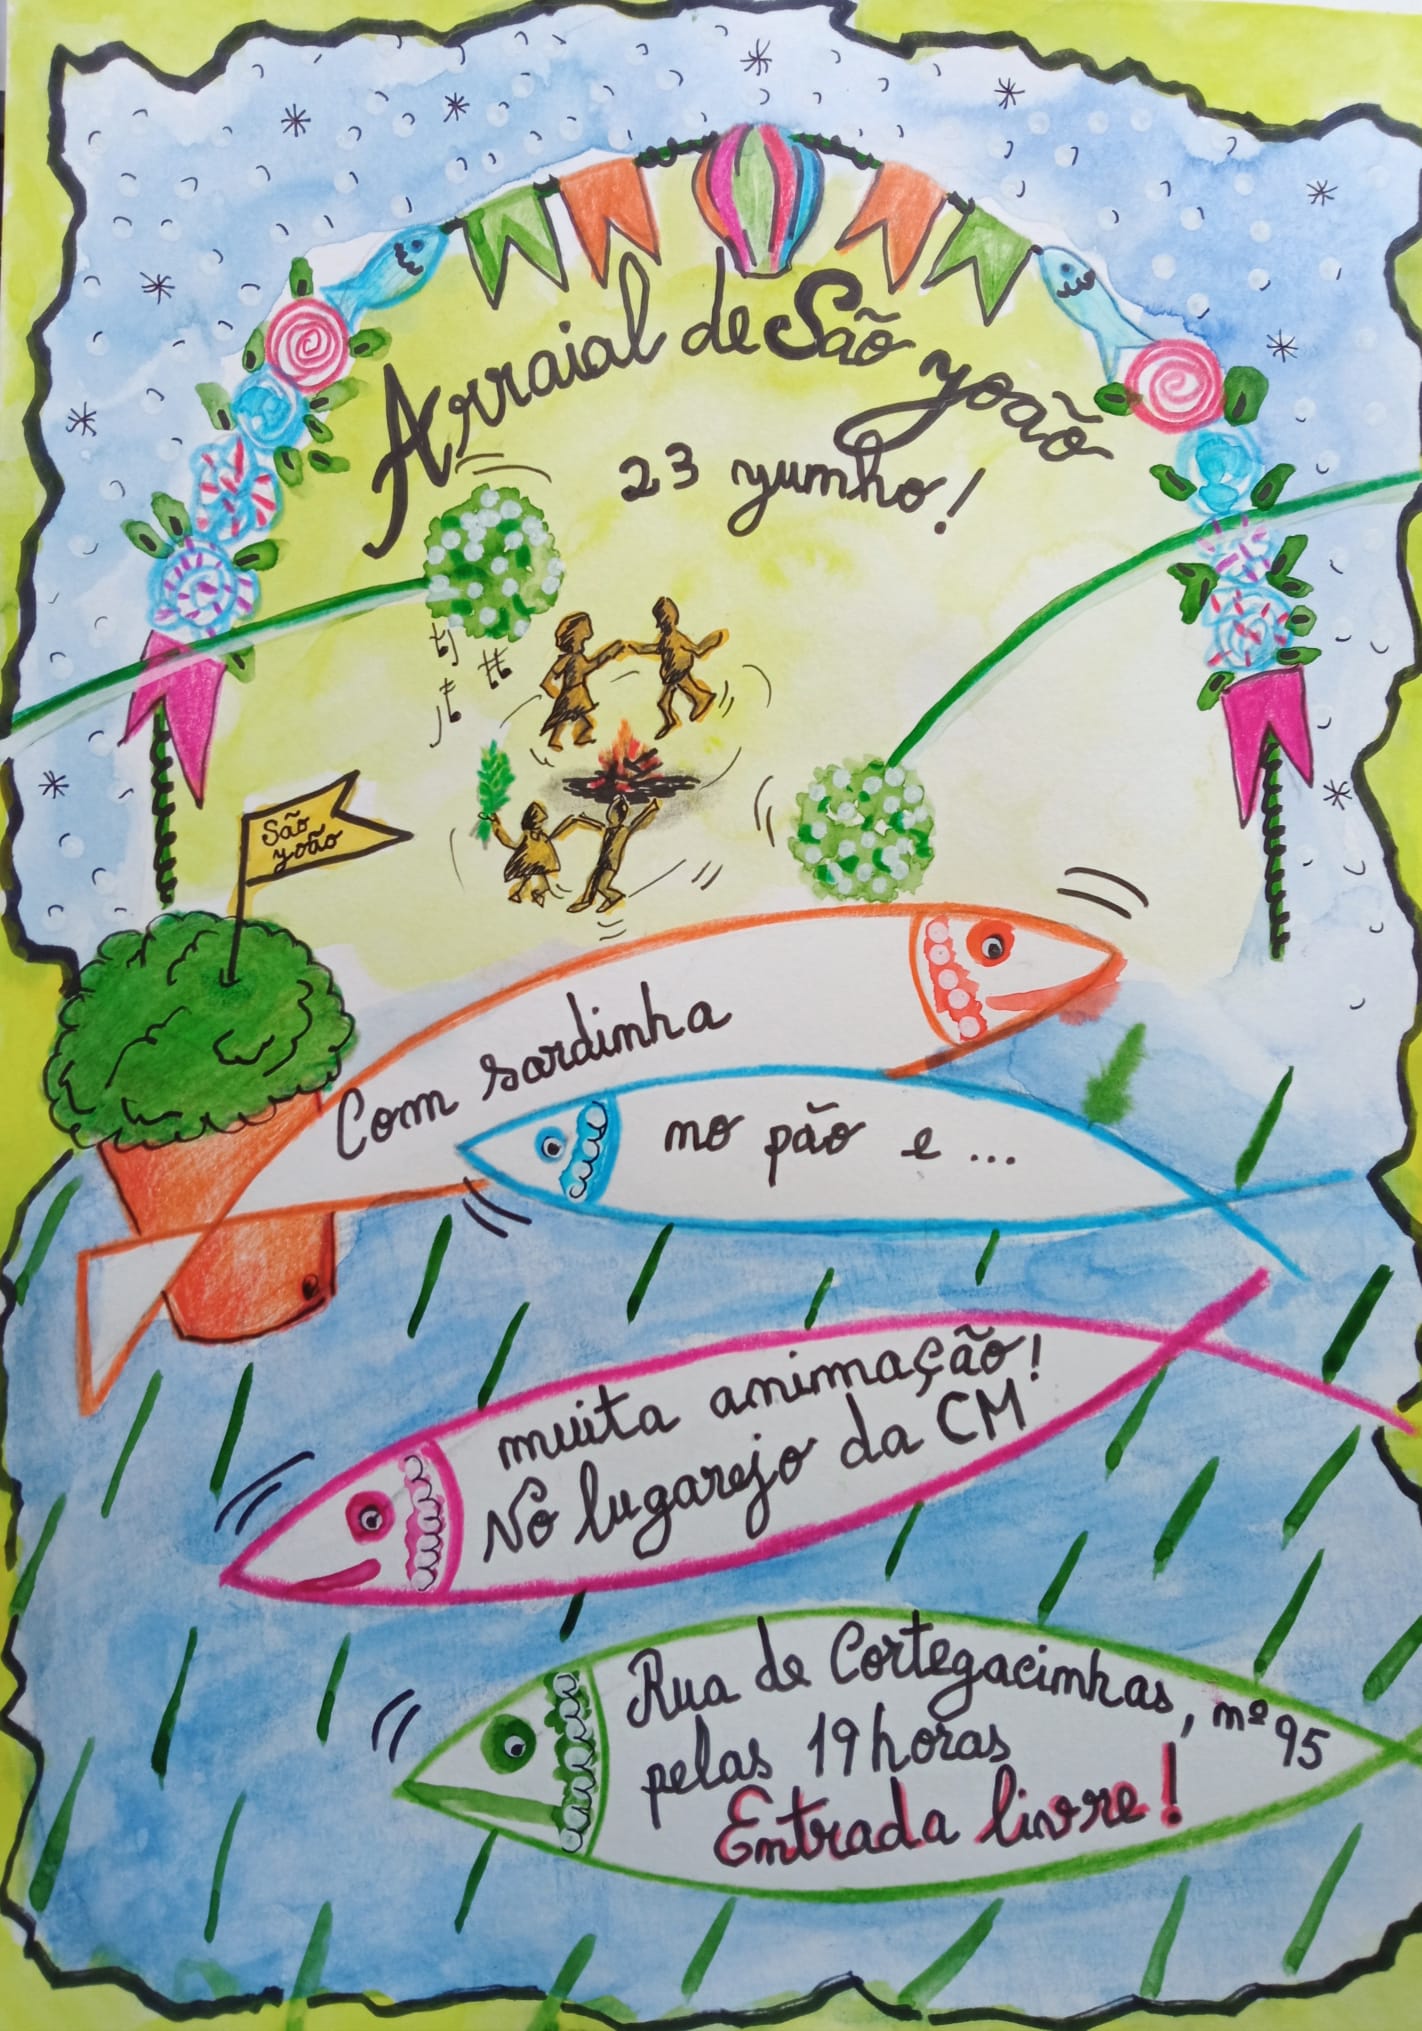 Arraial de São João
23 junho!
São
João
Com sardinha
no pão e ...
muita animação!
No lugarejo da CM
Rua de Cortegacinhas, nº 95
pelas 19 horas
Entrada livre!